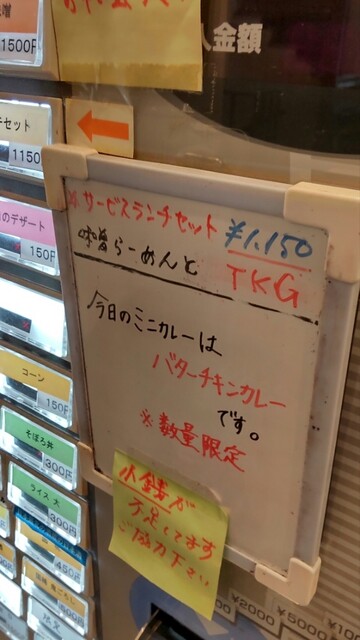 1500円
人金額
セット
1150
※サービスランチセット ¥1,150
味噌らーめんと TKG
のデザート
150円
今日のミニカレーは
バターチキンカレー
です。
※数量限定
コーン
150円
そぼろ丼
300円
ライス 大
300円
小銭が
不足してます
ご協力下さい
¥2000
¥5000